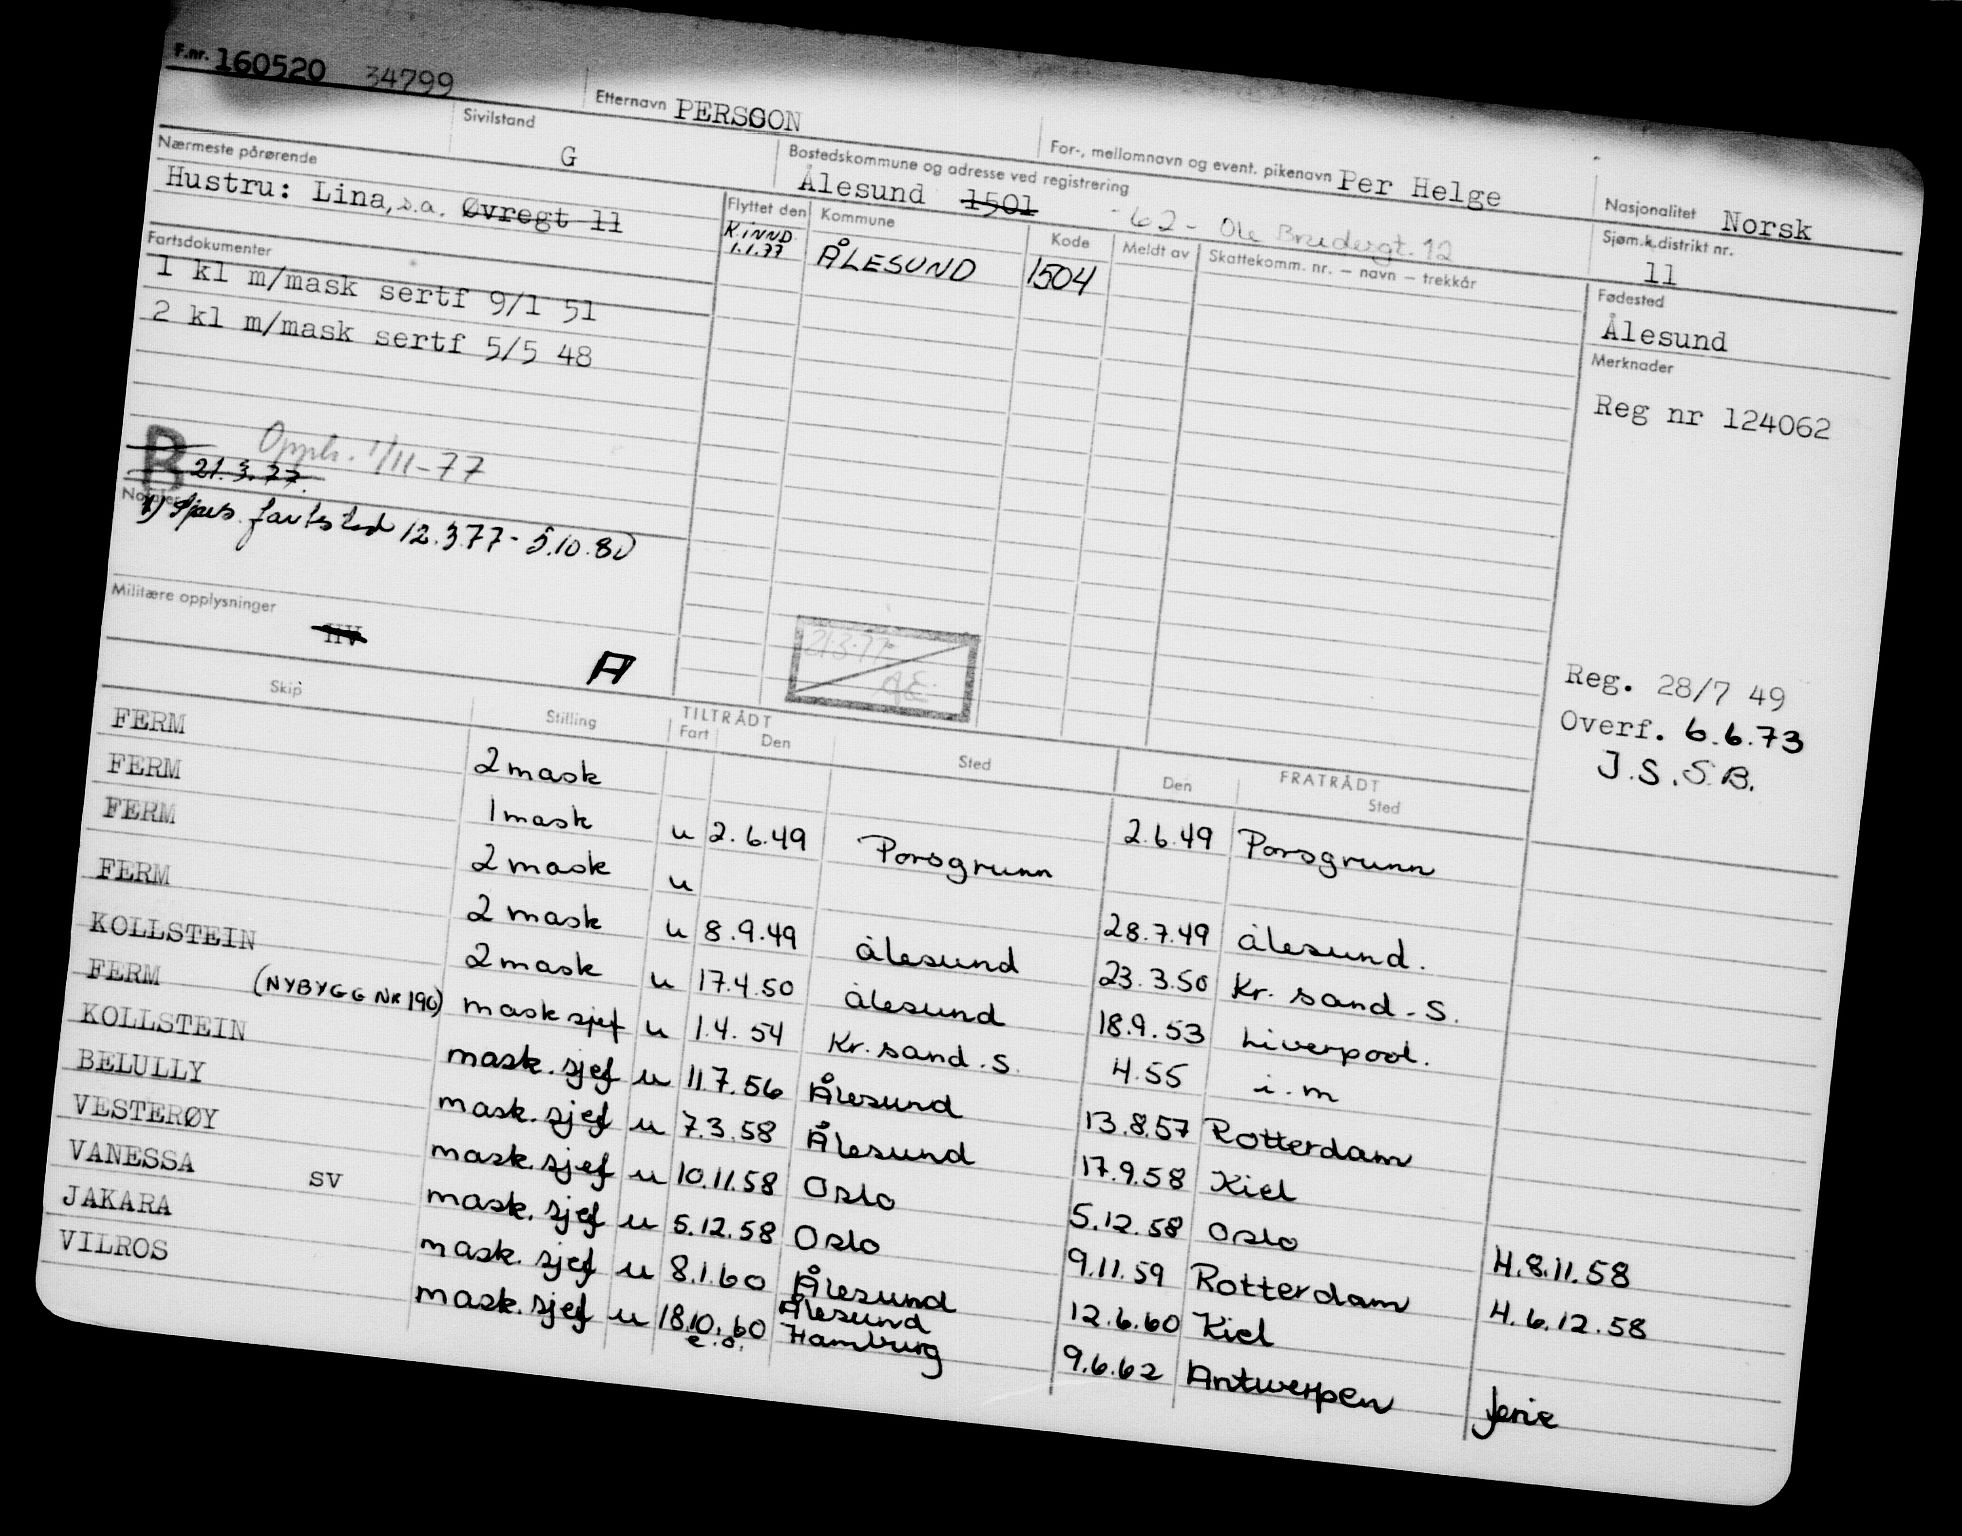 F.nr. 160520 34799
Etternavn PERSSON
For-, mellomnavn og event. pikenavn Per Helge
Nasjonalitet Norsk
Sivilstand G
Bostedskommune og adresse ved registrering
Ålesund 1501 -62- Ole Brudergt. 12
Sjøm.k.distrikt nr. 11
Nærmeste pårørende
Hustru: Lina, s.a. Øvregt 11
Flyttet den Kommune Kode Meldt av Skattekomm. nr. – navn – trekkår
K.INND. 1.1.77 ÅLESUND 1504
Fødested
Ålesund
Fartsdokumenter
1 kl m/mask sertf 9/1 51
2 kl m/mask sertf 5/5 48
Merknader
Reg nr 124062
B Opph. 1/11-77
21.3.77.
fartsted 12.3.77 - 5.10.80
Militære opplysninger
HV
A
21.3.77
AE
Reg. 28/7 49
Overf. 6.6.73
J.S.S.B.
Skip Stilling TILTRÅDT Fart Den Sted FRATRÅDT Den Sted
FERM 2 mask 2.6.49 Porsgrunn
FERM 1 mask u 2.6.49 Porsgrunn
FERM 2 mask u 28.7.49 Ålesund.
FERM 2 mask u 8.9.49 Ålesund 23.3.50 Kr. sand. S.
KOLLSTEIN 2 mask u 17.4.50 Ålesund 18.9.53 Liverpool.
FERM (NYBYGG NR 196) mask sjef u 1.4.54 Kr. sand. S. 4.55 i.m
KOLLSTEIN mask. sjef u 11.7.56 Ålesund 13.8.57 Rotterdam
BELULLY mask. sjef u 7.3.58 Ålesund 17.9.58 Kiel
VESTERØY mask. sjef u 10.11.58 Oslo 5.12.58 Oslo H.8.11.58
VANESSA SV mask. sjef u 5.12.58 Oslo 9.11.59 Rotterdam H.6.12.58
JAKARA mask. sjef u 8.1.60 Ålesund 12.6.60 Kiel
VILROS mask. sjef u 18.10.60 e.o. Ålesund Hamburg 9.6.62 Antwerpen ferie